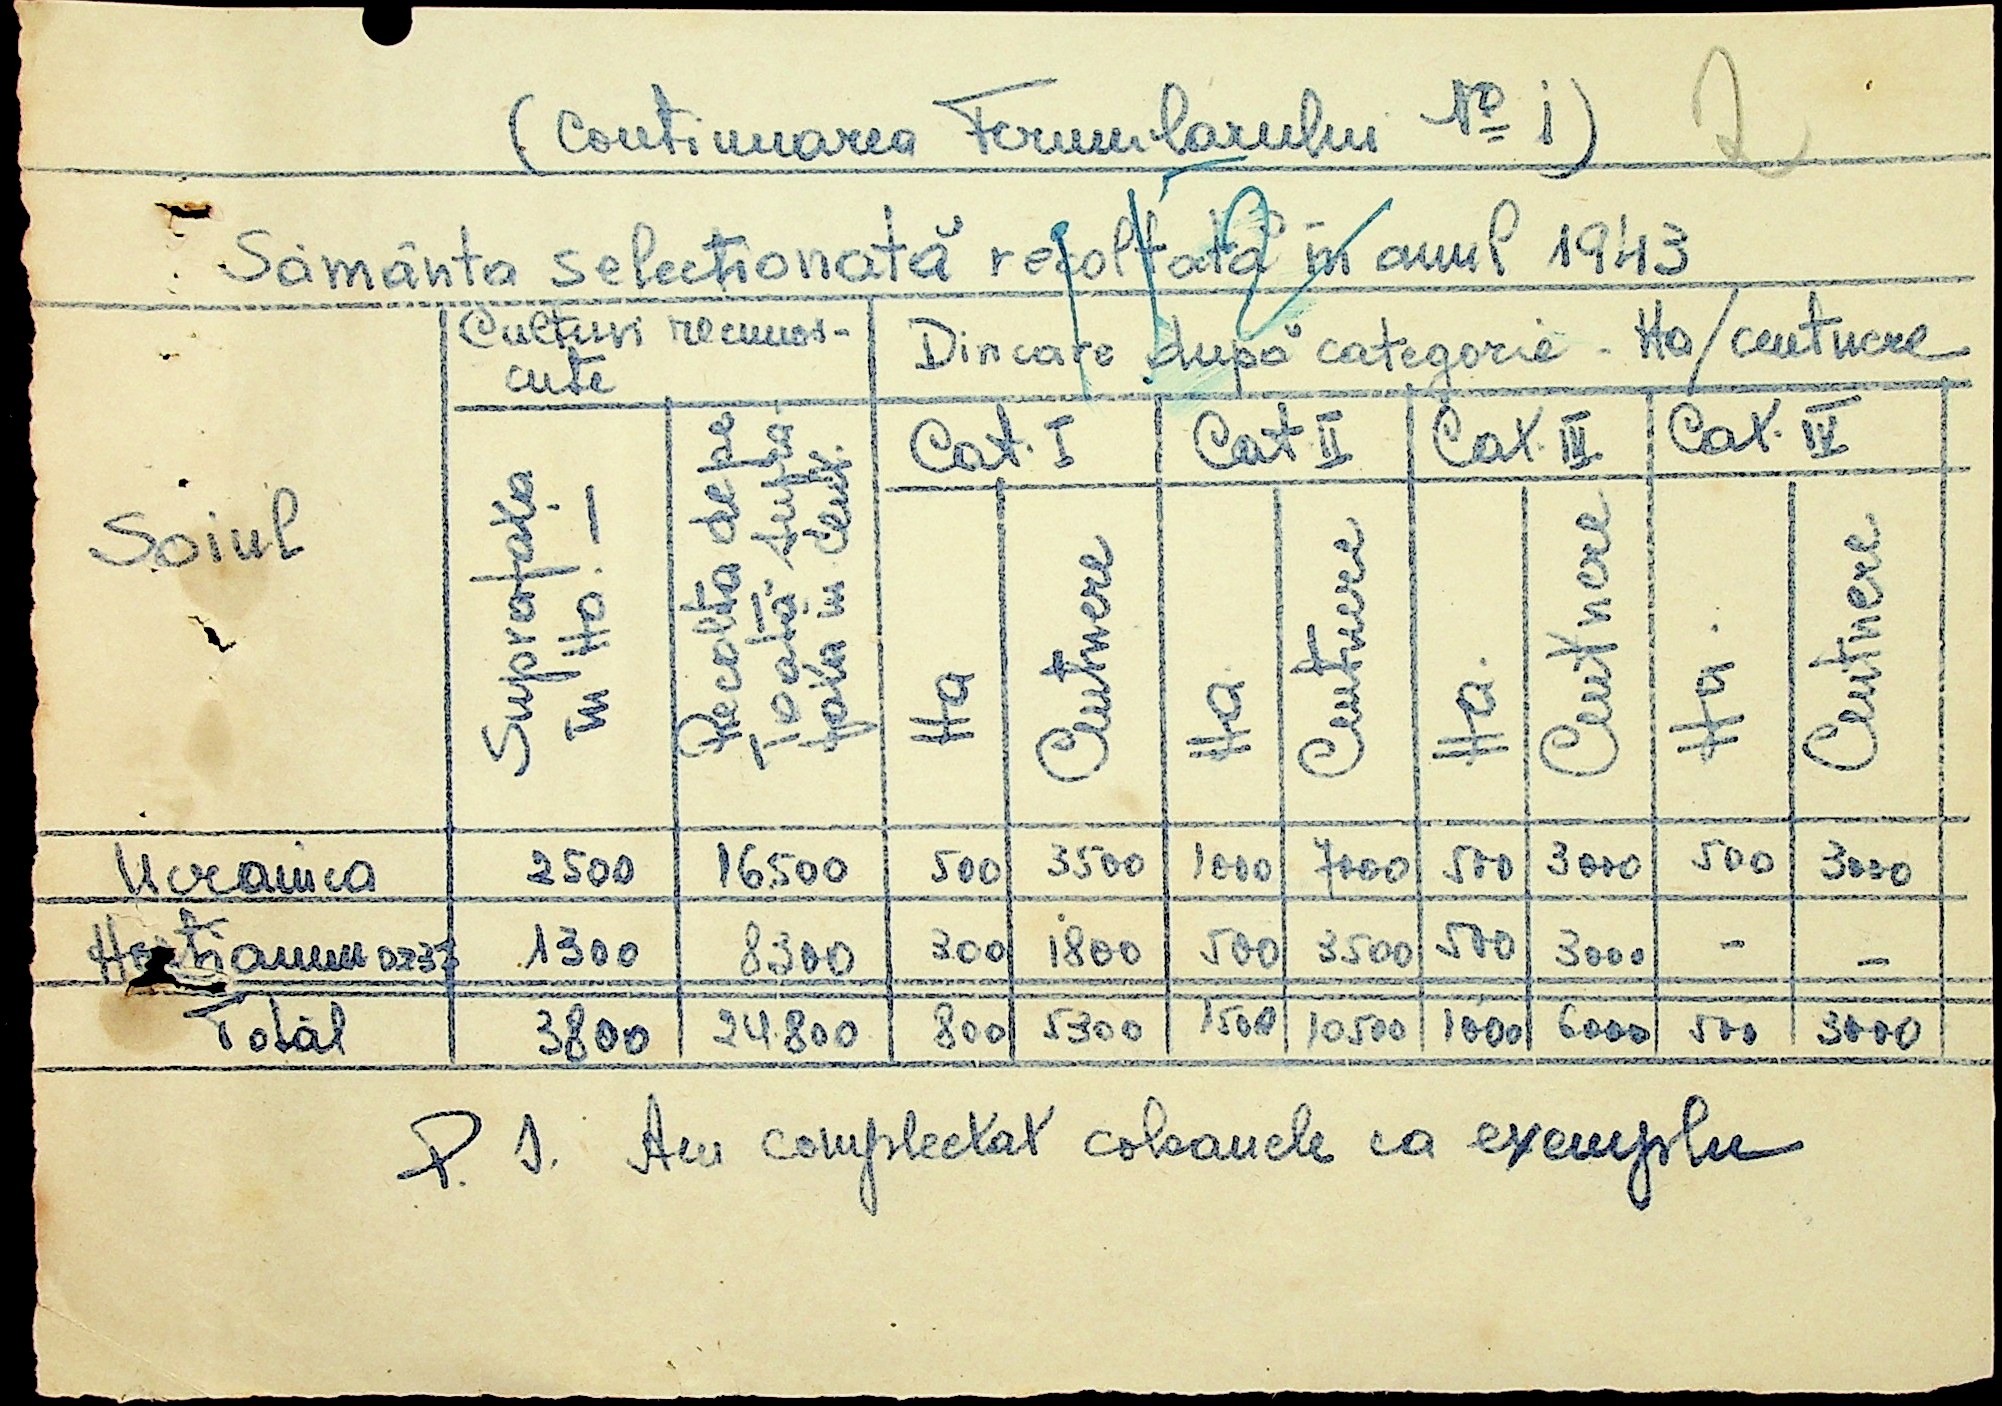 (Continuarea Formularului № 1) 2
Sământa selecționată recoltată în anul 1943
Soiul
Culturi recunos-
cute
Dincare după categorie - Ha/centnere
Cat. I Cat II Cat. III Cat. IV
Suprafata
în Ha.
Recolta de pe
toată supra
fața în centn.
Ha Centnere Ha Centnere Ha. Centnere Ha. Centnere
Ucrainca 2500 16.500 500 3500 1000 7000 500 3000 500 3000
0237 1300 8300 300 1800 500 3500 500 3000 - -
Total 3800 24.800 800 5300 1500 10500 1000 6000 500 3000
P. S. Am complectat coloanele ca exemplu